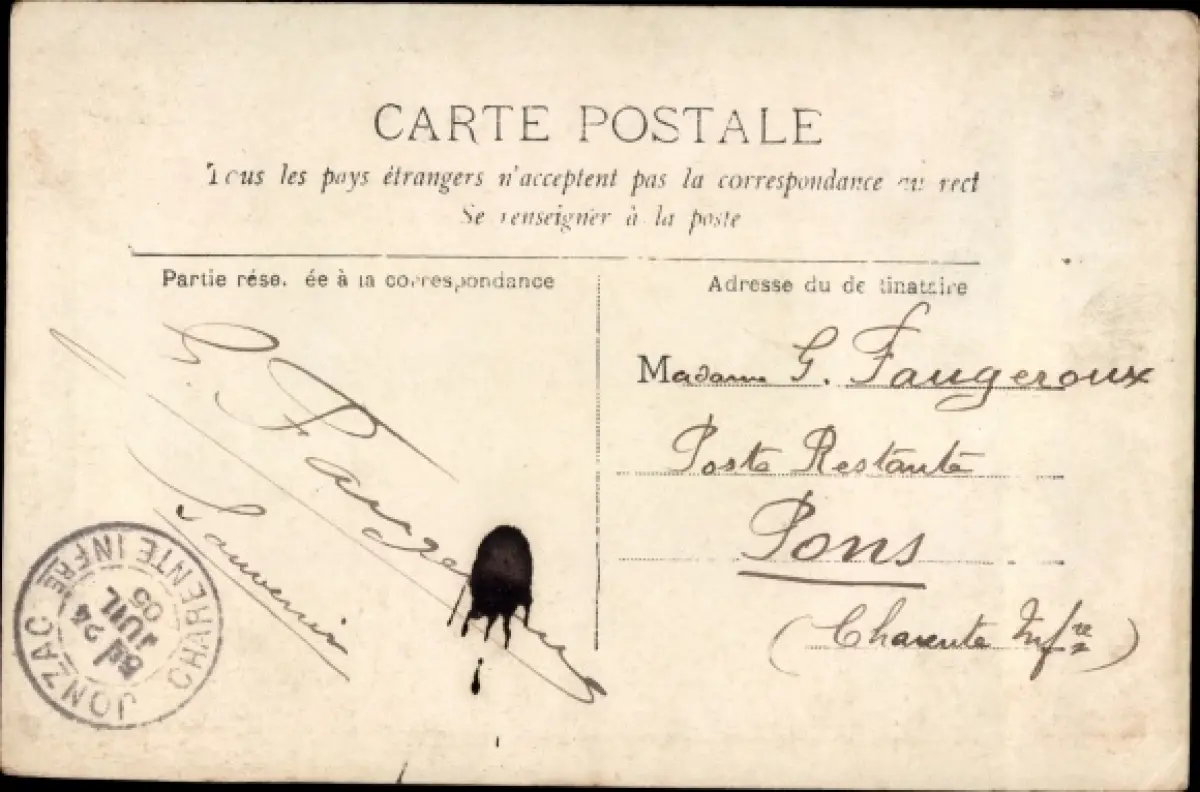 CARTE POSTALE
Tous les pays étrangers n'acceptent pas la correspondance au rect
Se renseigner à la poste
Partie rése. ée à la correspondance
Adresse du de tinataire
G. Faugeroux
Souvenir
Madame G. Faugeroux
Poste Restante
Pons
(Charente Infre)
JONZAC CHARENTE INFRE
24
JUIL
05